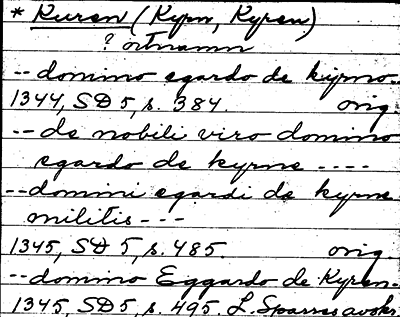 * Kuren (Kyrn, Kyren)
? ortnamn
-- domino egardo de kyrno.
1344, SD 5, s. 384. orig.
-- de nobili viro domino
egardo de kyrne ----
-- domini egardi de kyrne
militis ---
1345, SD 5, s. 485. orig.
-- domino Eggardo de Kyren.
1345, SD 5, s. 495. L. Sparres avskr.